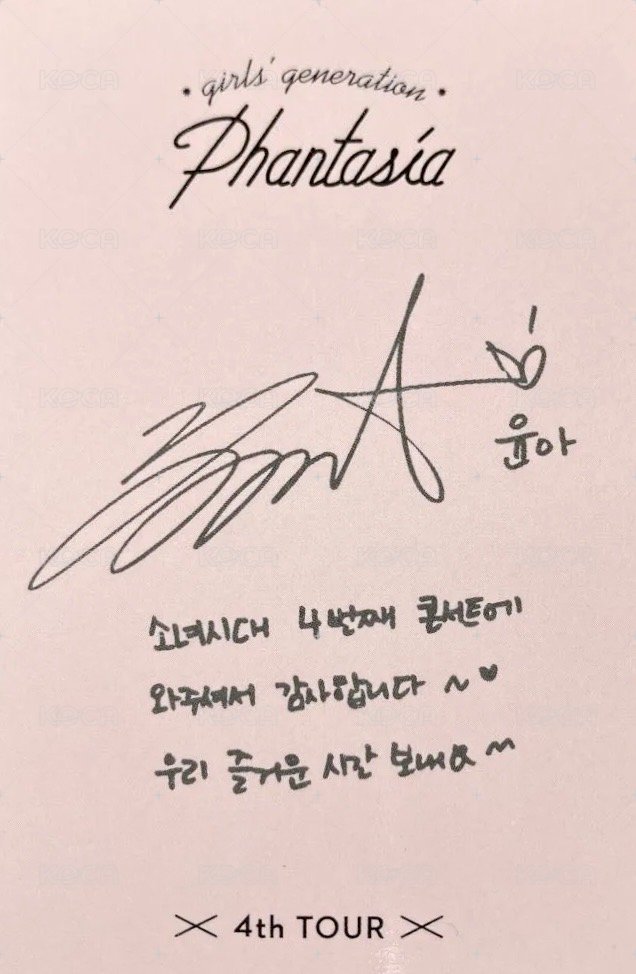 · girls' generation ·
Phantasia
윤아
소녀시대 4번째 콘서트에
와주셔서 감사합니다 ~♥
우리 즐거운 시간 보내요 ^^
4th TOUR
KOCA